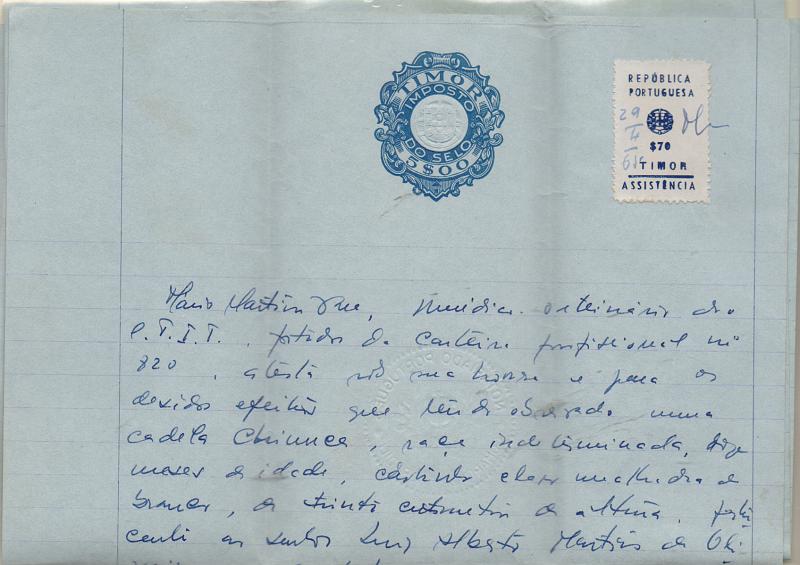 TIMOR
IMPOSTO
DO SELO
5$00
REPÚBLICA
PORTUGUESA
29
$70
TIMOR
ASSISTÊNCIA
Mário Martins, médico veterinário do
C.T.I.T., portador da carteira profissional nº
820, atesta sob sua honra e para os
devidos efeitos que tendo observado uma
cadela, raça indeterminada, doze
meses de idade, castanho claro malhada de
branco, de trinta centimetros de altura, perten
cente ao senhor Luis Alberto Martins de